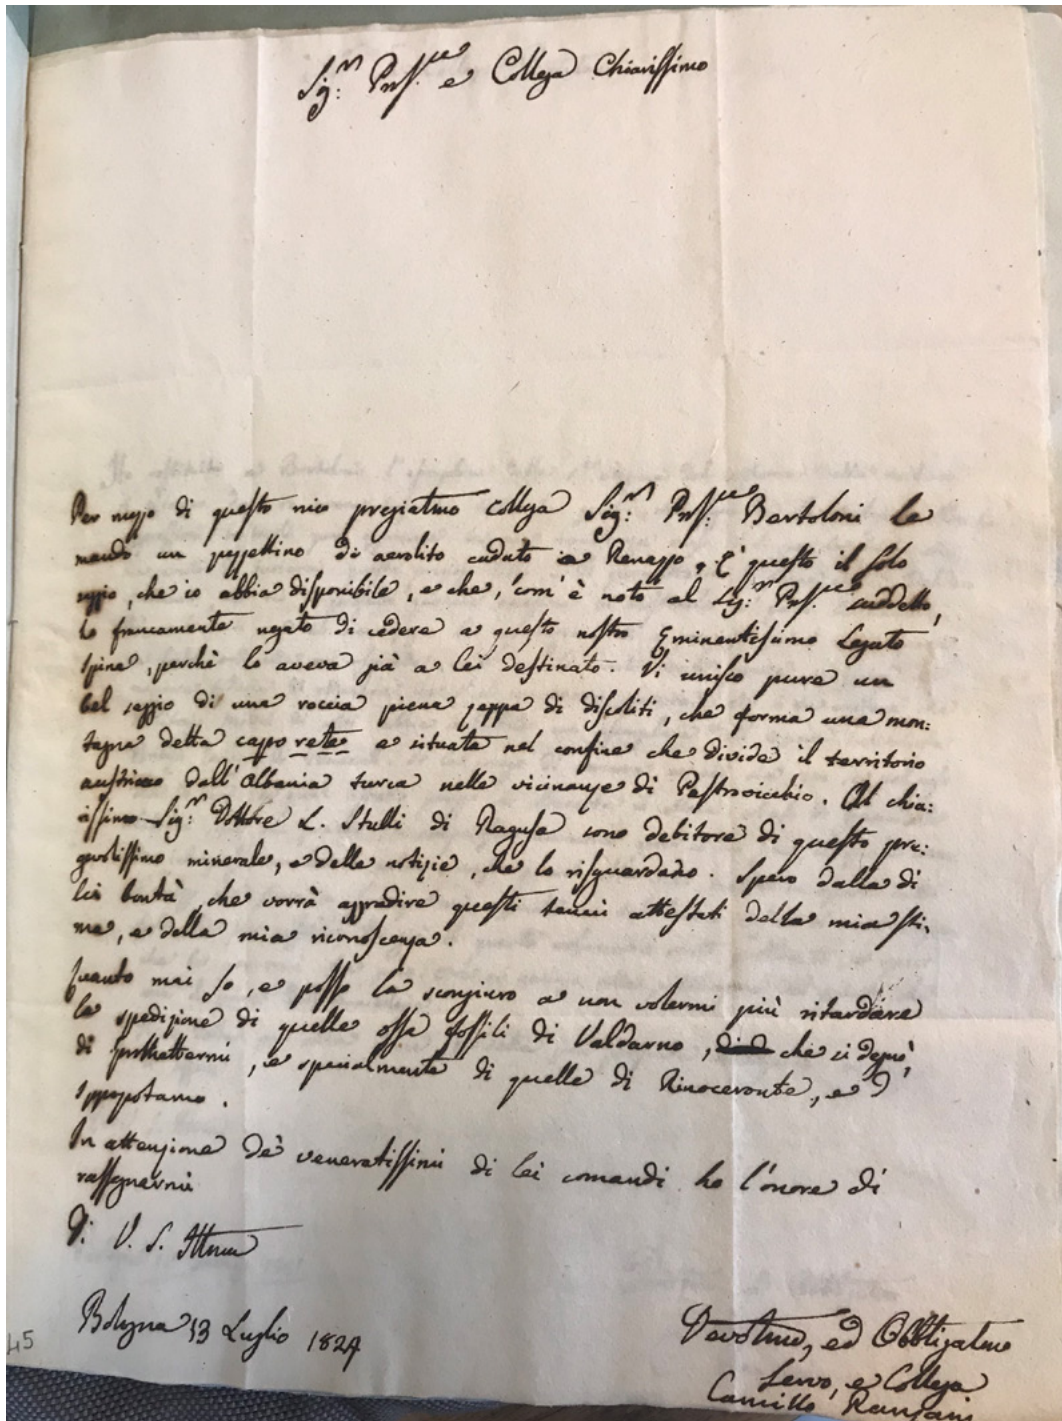 Sig.r Prof.re e Collega Chiarissimo
Per mezzo di questo mio pregiatmo Collega Sig.r Prof.re Bertoloni le
mando un pezzettino di aerolito caduto a Renazzo. E' questo il solo
saggio, che io abbia disponibile, e che, com'è noto al Sig.r Prof.re suddetto,
ho francamente negato di cedere a questo nostro Eminentissimo Legato
Spina, perchè lo aveva già a lei destinato. Vi unisco pure un
bel saggio di una roccia piena zeppa di discoliti, che forma una mon:
tagna detta cappo rete e situata nel confine che divide il territorio
austriaco dall'Albania turca nelle vicinanze di . Al chia:
rissimo Sig.r Dottore L. Stulli di Ragusa sono debitore di questo pre:
gevolissimo minerale, e delle notizie, che lo risguardano. Spero dalla di
lei bontà, che vorrà aggradire questi tenui attestati della mia sti:
ma, e della mia riconoscenza.
Quanto mai so, e posso la scongiuro a non volermi più ritardare
la spedizione di quelle ossa fossili di Valdarno, che si degnò
di promettermi, e specialmente di quelle di Rinoceronte, e d'
Ippopotamo.
In attenzione de' veneratissimi di lei comandi ho l'onore di
rassegnarmi
Di V. S. Illma
Bologna 13 Luglio 1824
Devotmo, ed Obbligatmo
Servo, e Collega
Camillo Ranzani
45